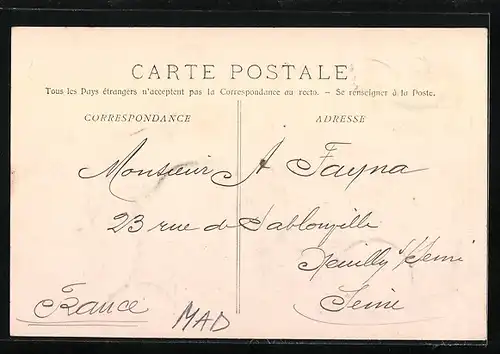 CARTE POSTALE
Tous les Pays étrangers n'acceptent pas la Correspondance au recto. - Se renseigner à la Poste.
CORRESPONDANCE
ADRESSE
Monsieur A Fayna
23 rue de Sablonville
Neuilly s/Seine
Seine
France
MAD